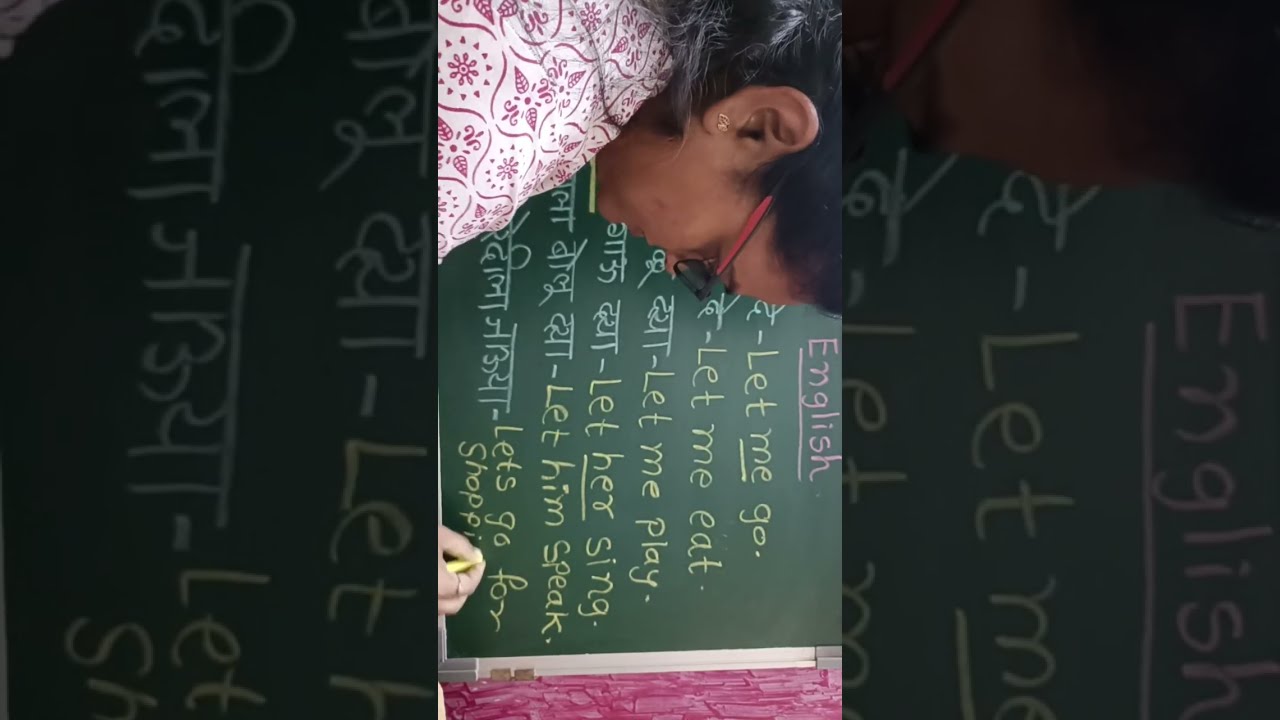 English
दे - Let me go.
दे - Let me eat.
द्या - Let me play.
गाऊ द्या - Let her sing.
ला बोलू द्या - Let him speak.
रेदीला जाऊया - Lets go for
Shoppi